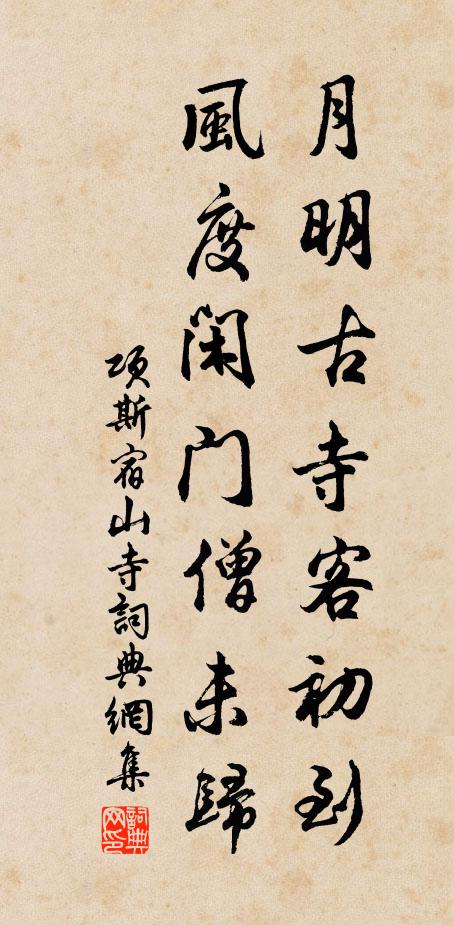 月明古寺客初到
風度閑門僧未歸
項斯宿山寺詞典網集
詞典网印